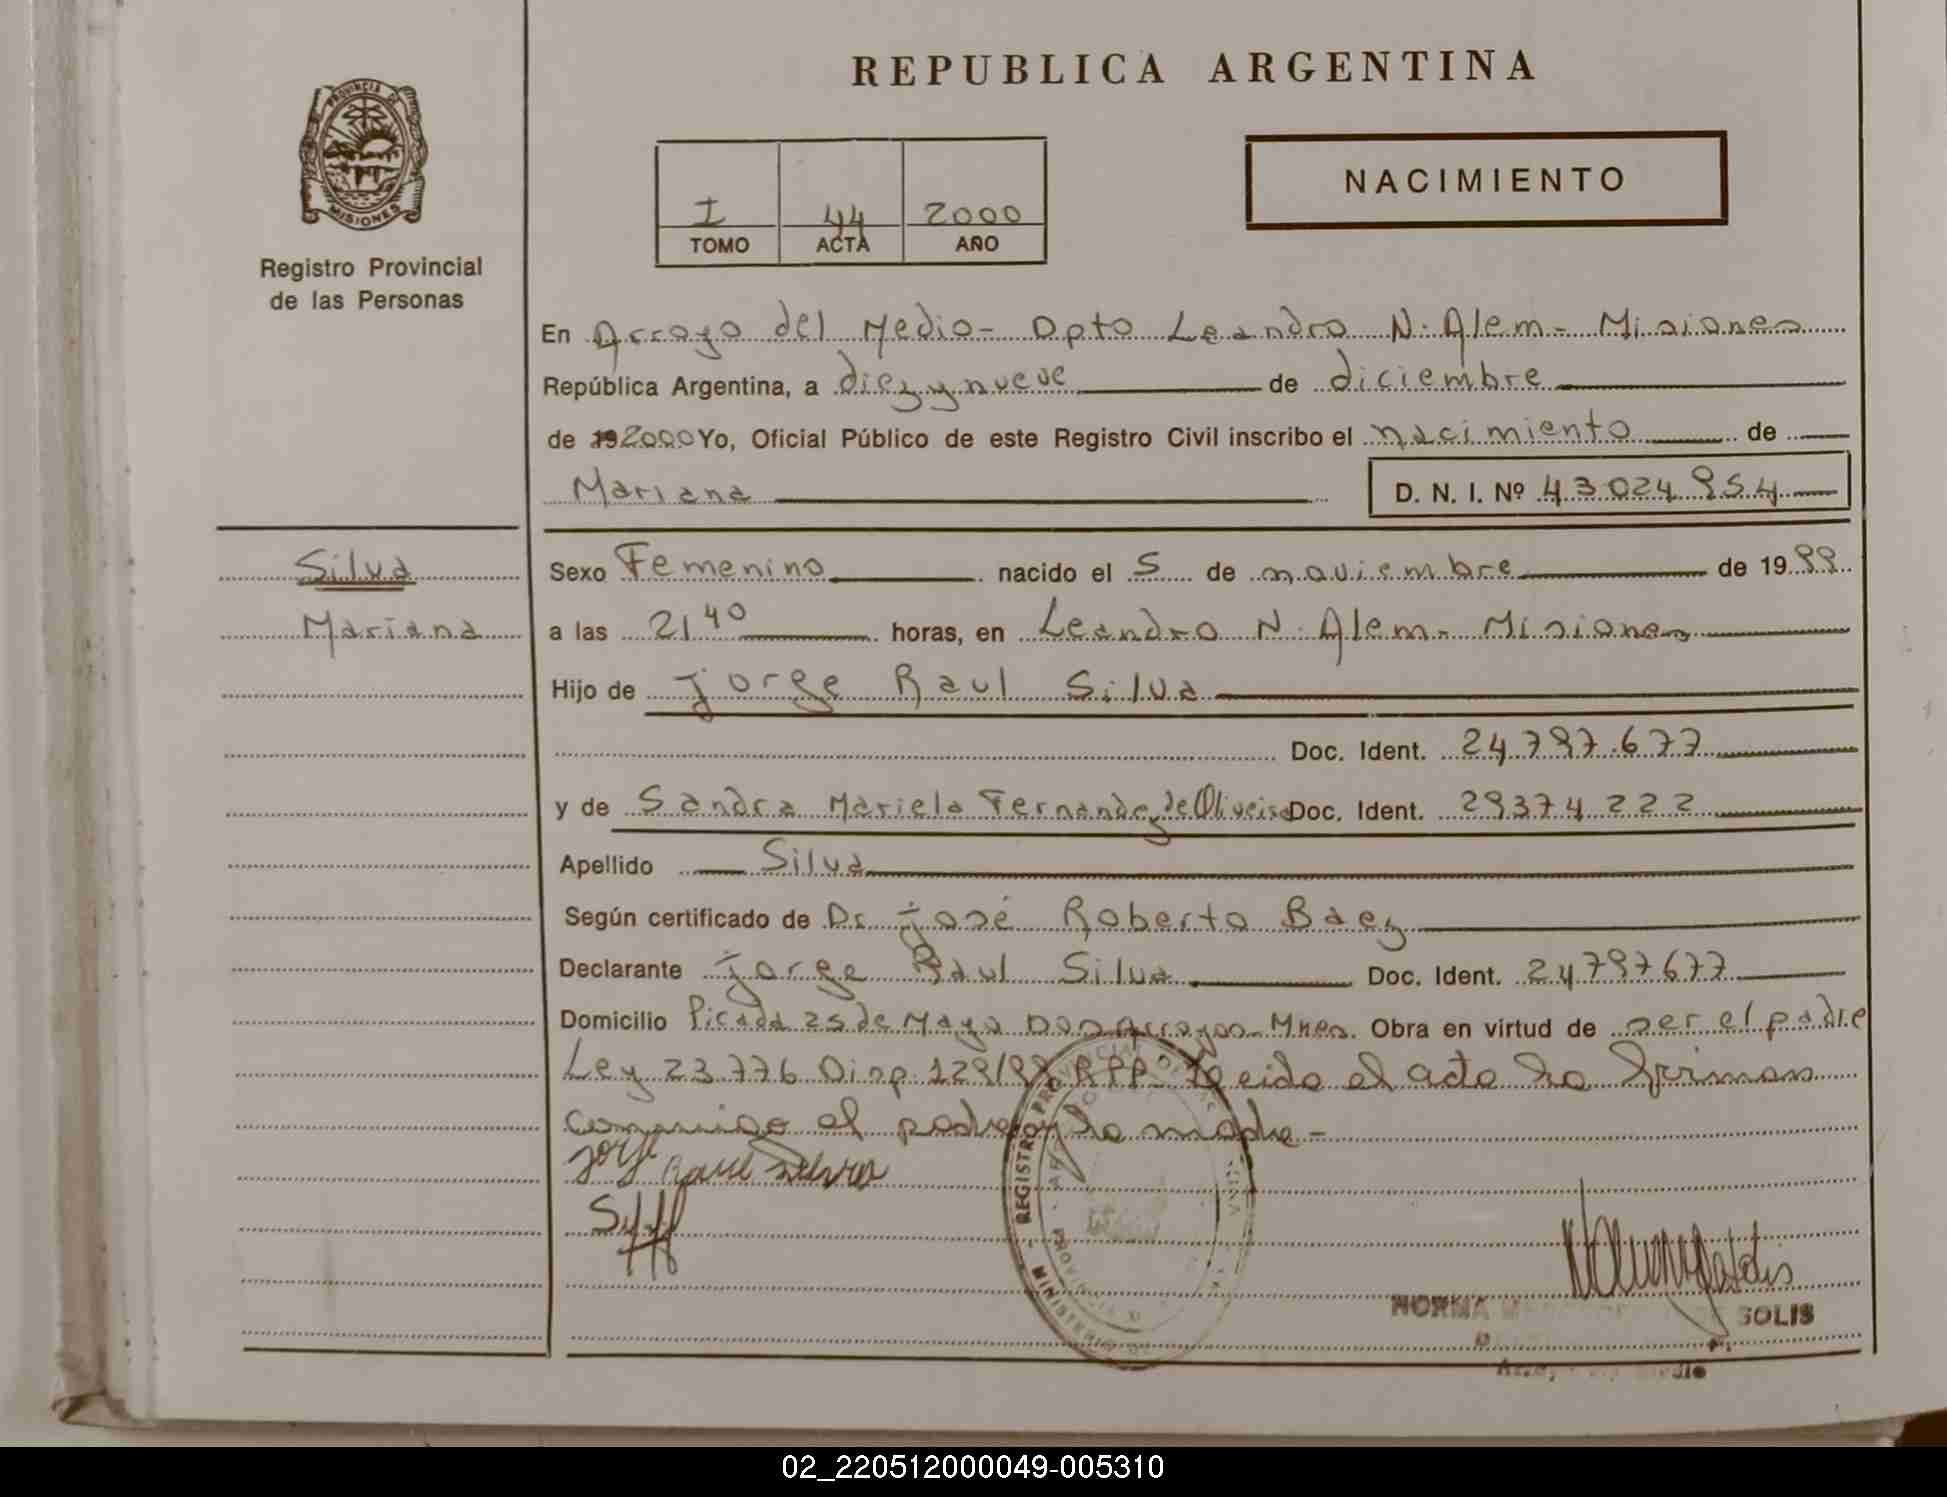 REPUBLICA ARGENTINA
PROVINCIA DE
MISIONES
Registro Provincial
de las Personas
I 44 2000
TOMO ACTA AÑO
NACIMIENTO
En Arroyo del Medio - Dpto Leandro N. Alem - Misiones
República Argentina, a diez y nueve de diciembre
de 19 2000 Yo, Oficial Público de este Registro Civil inscribo el nacimiento de
Mariana D. N. I. Nº 43024954
Silva
Mariana
Sexo Femenino nacido el 5 de noviembre de 1999
a las 21 40 horas, en Leandro N. Alem - Misiones
Hijo de Jorge Raul Silva
Doc. Ident. 24.797.677
y de Sandra Mariela Fernandez de Oliveira Doc. Ident. 29374222
Apellido Silva
Según certificado de Dr José Roberto Baez
Declarante Jorge Raul Silva Doc. Ident. 24797677
Domicilio Picada 25 de Mayo Dos Arroyos - Mnes. Obra en virtud de ser el padre
Ley 23.776 Disp. 129/98 RPP. Leida el acta la firman
conmigo el padre y la madre -
Jorge Raul Silva
REGISTRO PROVINCIAL DE LAS
MINISTERIO DE
PROVINCIA
NORMA SOLIS